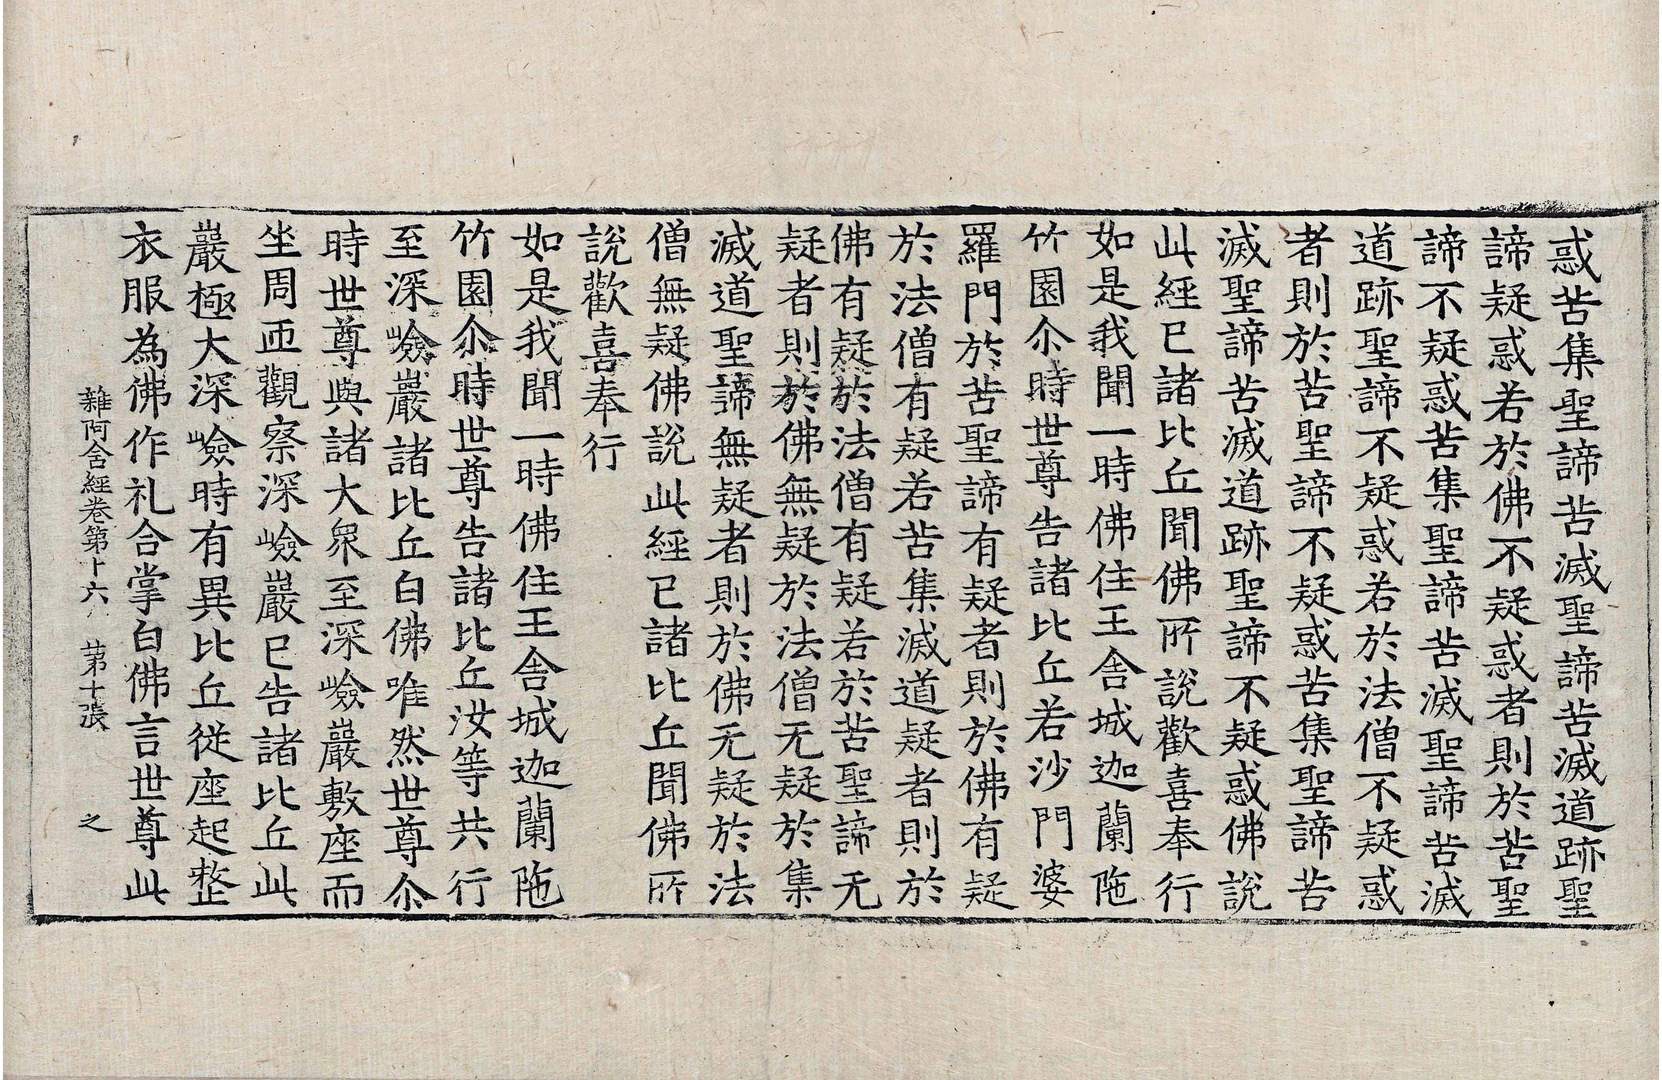 惑苦集聖諦苦滅聖諦苦滅道跡聖
諦疑惑若於佛不疑惑者則於苦聖
諦不疑惑苦集聖諦苦滅聖諦苦滅
道跡聖諦不疑惑若於法僧不疑惑
者則於苦聖諦不疑惑苦集聖諦苦
滅聖諦苦滅道跡聖諦不疑惑佛說
此經已諸比丘聞佛所說歡喜奉行
如是我聞一時佛住王舍城迦蘭陁
竹園尒時世尊告諸比丘若沙門婆
羅門於苦聖諦有疑者則於佛有疑
於法僧有疑若苦集滅道疑者則於
佛有疑於法僧有疑若於苦聖諦无
疑者則於佛無疑於法僧无疑於集
滅道聖諦無疑者則於佛无疑於法
僧無疑佛說此經已諸比丘聞佛所
說歡喜奉行
如是我聞一時佛住王舍城迦蘭陁
竹園尒時世尊告諸比丘汝等共行
至深嶮巖諸比丘白佛唯然世尊尒
時世尊與諸大衆至深嶮巖敷座而
坐周迊觀察深嶮巖已告諸比丘此
巖極大深嶮時有異比丘從座起整
衣服為佛作礼合掌白佛言世尊此
雜阿含經卷第十六 第十張 之